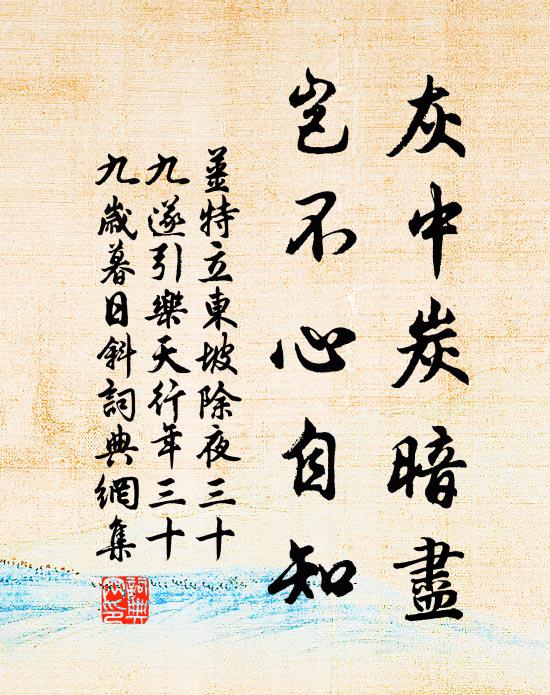 灰中炭暗盡
豈不心自知
姜特立東坡除夜三十
九遂引樂天行年三十
九歲暮日斜詞典網集